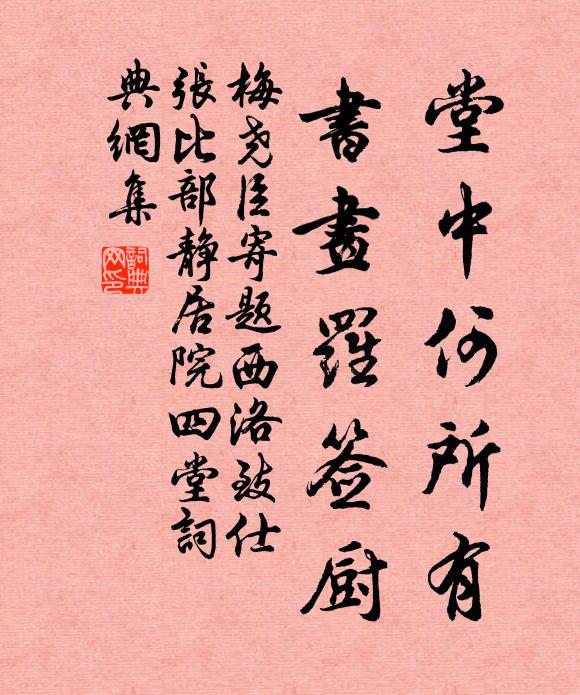 堂中何所有
書畫羅签厨
梅尧臣寄題西洛致仕
張比部靜居院四堂詞
典網集
詞典網印